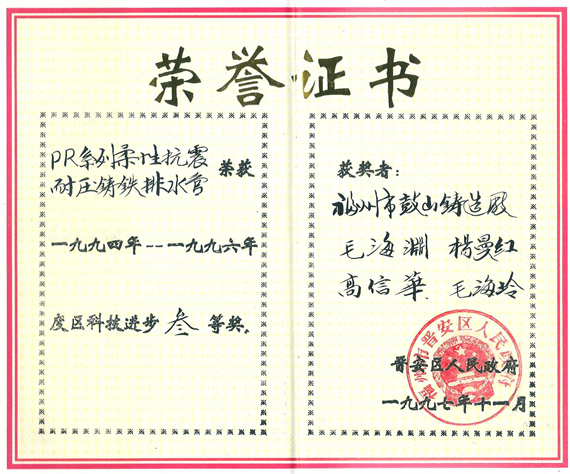 荣誉证书
PR系列柔性抗震
耐压铸铁排水管
荣获
一九九四年--一九九六年
度区科技进步叁等奖.
获奖者:
福州市鼓山铸造厂
毛海渊 楊曼红
高信華、毛海玲
福州市晋安区人民政府
晋安区人民政府
一九九七年十一月